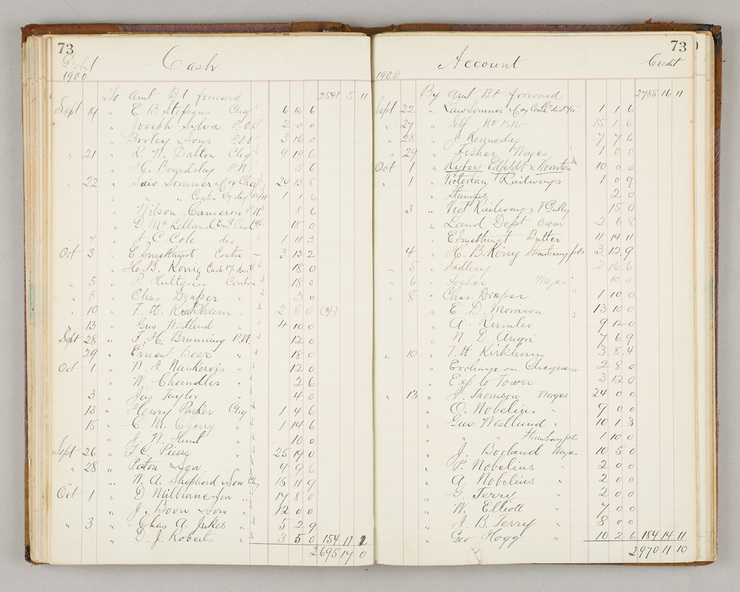 73
Debit Cash
1900
To Amt Bt forward 2541 5 11
Sept 19 " E B Stephens Chq 6 15 6
" Joseph Sylva P.O.O 2 0 0
" Sons P.O.O 3 16 0
" 21 " R. H. Dalton Chq 9 19 6
" H. P.N. 8 6
" 22 " 24 13 8
" 1 1 6
" Wilson Cameron P.N. 8 6
" 18 0
" C Cole do 1 11 3
Oct 3 " E Smethurst Contra 3 13 2
" 18 0
" 5 " P. Hultgren Contra 18 0
" 8 " Chas Draper
" 10 " T. H. Kirkham 2 8 0
" 13 " Geo Westlund 4 10 0
Sept 28 " F. H. Brunning P.N. 12 0
" 29 " Ernest 18 0
Oct 1 " 12 0
" W. Chandler 2 6
" 3 " Jas Taylor 4 0
" 13 " Henry Parker Chq 1 4 6
" 15 " 1 14 6
" J. W. Hunt 10 0
Sept 26 " F C Piesse 25 19 0
" 28 " Son 4 9 6
" W. A. Shepherd & Son Chq 15 11 9
Oct 1 " D Millbourne Jnr " 17 8 0
" J. Boon Son " 12 0 0
" 3 " Chas A. Jukes " 5 2 9
" D. J. Roberts " 3 5 0 154 11 1
2695 17 0
73
Account Credit
1900
By Amt Bt forward 2785 16 11
Sept 22 " 1 1 6
" 27 " Self 15 1 6
" 28 " J Kennedy 7 7 6
" 29 " Fisher Wages 1 0 0
Oct 1 " Rylers Edfeldt & Thornton 10 0 0
" 1 " Victorian Railways 1 0 9
" Stamps 2 0
" 3 " Vict Railways 15 0
" Land Dept 2 6 8
" E Smethurst Butter 11 14 11
" 4 " H. B. Kerry Strawberry plts 3 13 9
" 5 " Sadlery 2 16 6
" 6 " Fisher Wages 10 0
" 8 " Chas Draper 1 10 0
" E. D. Morrison 13 10 0
" A. 9 12 0
" 7 6 9
" 10 " T. H. Kirkham 3 8 4
" Exchange on Cheques 2 8 0
" Exp to Town 3 12 0
" 13 " J. Thomson Wages 24 0 0
" O. Nobelius " 9 0 0
" Geo. Westlund " 10 1 3
" Strawby plts 1 10 0
" J. Borland Wages 10 5 0
" P. Nobelius " 2 0 0
" A. Nobelius " 2 0 0
" G. Terry " 2 0 0
" W. Elliott " 7 0 0
" J. B. Terry " 8 0 0
" Geo Hogg " 10 2 6 184 14 11
2970 11 10